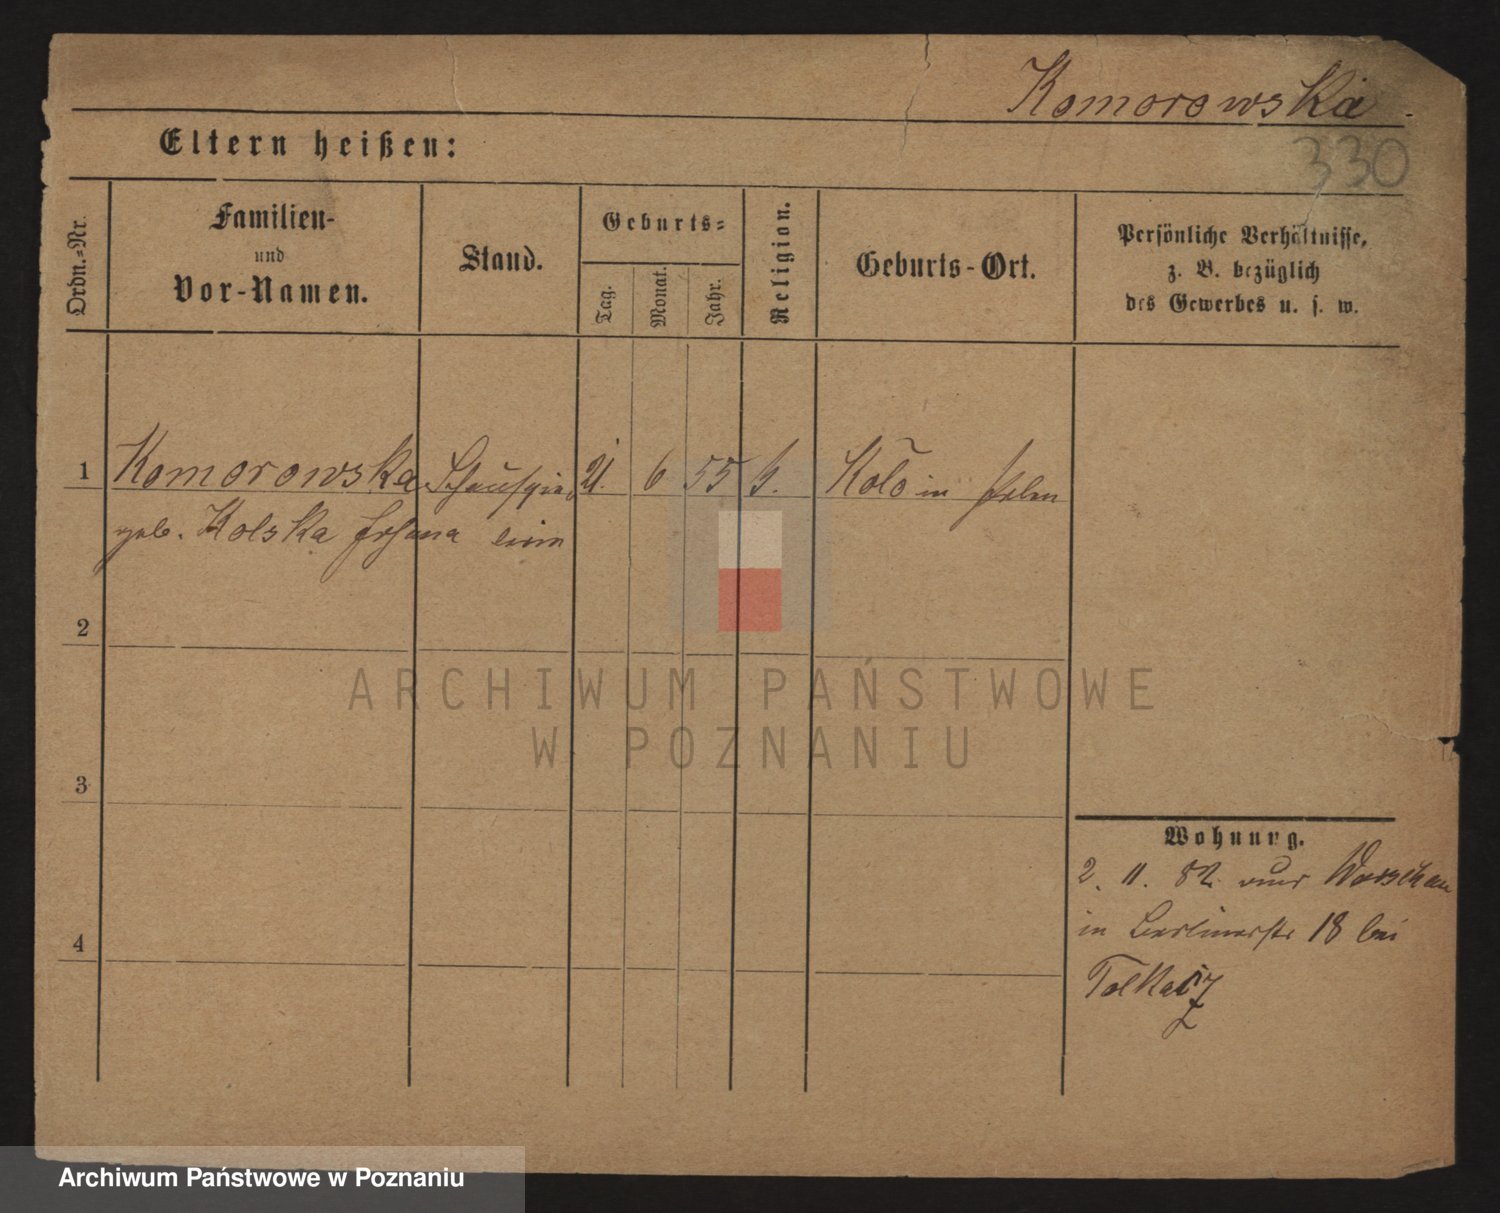 Komorowska.
330
Eltern heißen:
Ordn.-Nr.
Familien-
und
Vor-Namen.
Stand.
Geburts-
Tag.
Monat.
Jahr.
Religion.
Geburts-Ort.
Persönliche Verhältnisse,
z. B. bezüglich
des Gewerbes u. s. w.
1 Komorowska Schauspie 21. 6 55 Kolo in Polen
geb. Kolska lerin
2
3
4
Wohnung.
2. 11. 82. aus Warschau
in Berlinerstr 18 bei
ARCHIWUM PAŃSTWOWE
W POZNANIU
Archiwum Państwowe w Poznaniu